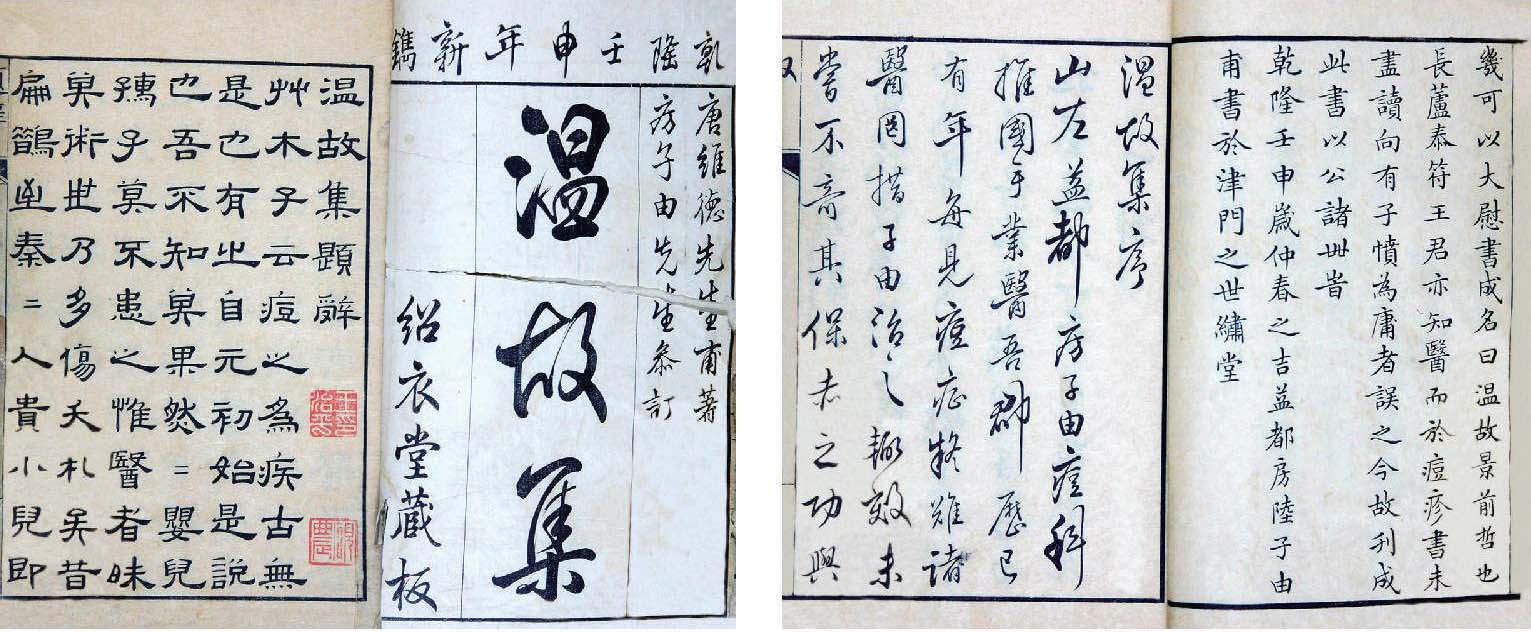 乾隆壬申年新鐫
唐維德先生甫著
房子由先生叅訂
温故集
紹衣堂藏板
温故集題辭
艸木子云痘之為疾古無
是也有之自元初始是說
也吾不知其果然〻嬰兒
孺子莫不患之惟醫者昧
其術世乃多傷夭札矣昔
扁鵲至秦〻人貴小兒即
幾可以大慰書成名曰温故景前哲也
長蘆泰符王君亦知醫而於痘疹書未
盡讀向有子憤為庸者誤之今故刊成
此書以公諸世旹
乾隆壬申歲仲春之吉益都房陸子由
甫書於津門之世繡堂
温故集序
山左益都房子由痘科
推國手業醫吾郡歷已
有年每見痘症疑難諸
醫罔措子由治之輒效未
嘗不奇其保赤之功與